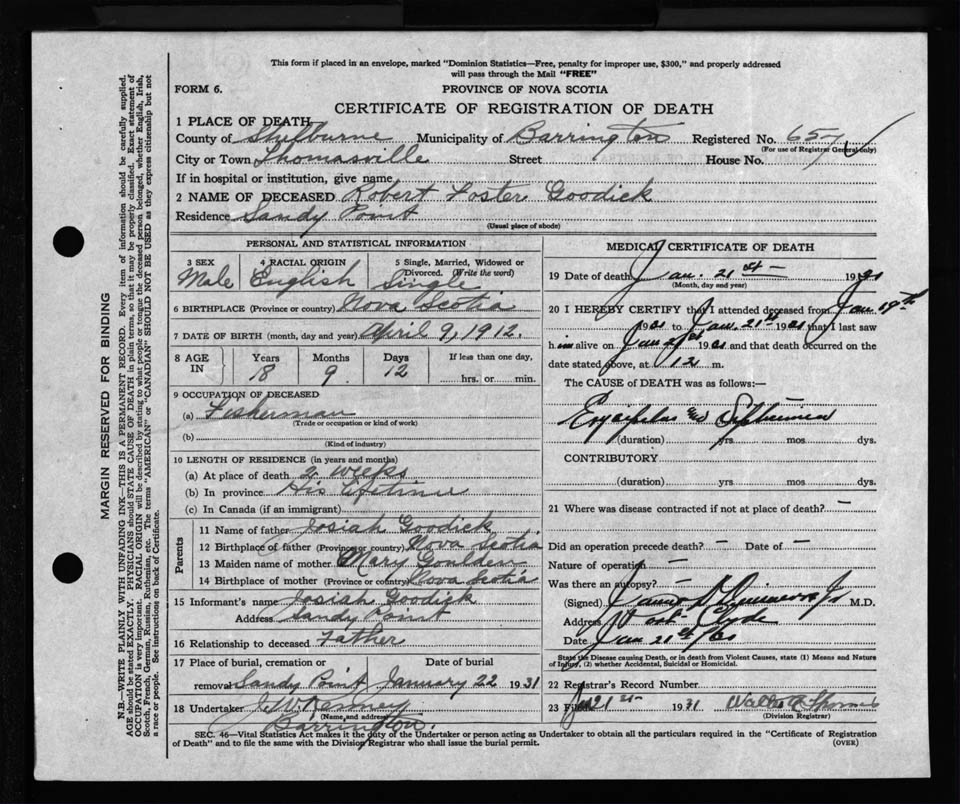 This form if placed in an envelope, marked "Dominion Statistics—Free, penalty for improper use, $300," and properly addressed
will pass through the Mail "FREE"
FORM 6. PROVINCE OF NOVA SCOTIA
CERTIFICATE OF REGISTRATION OF DEATH
1 PLACE OF DEATH
County of Shelburne Municipality of Barrington Registered No. 657
(For use of Registrar General only)
City or Town Thomasville Street House No.
If in hospital or institution, give name
2 NAME OF DECEASED Robert Foster Goodick
Residence Sandy Point
(Usual place of abode)
PERSONAL AND STATISTICAL INFORMATION
3 SEX 4 RACIAL ORIGIN 5 Single, Married, Widowed or
Divorced. (Write the word)
Male English Single
6 BIRTHPLACE (Province or country) Nova Scotia
7 DATE OF BIRTH (month, day and year) April 9, 1912.
8 AGE IN Years Months Days If less than one day,
18 9 12 hrs. or min.
9 OCCUPATION OF DECEASED
(a) Fisherman
(Trade or occupation or kind of work)
(b)
(Kind of industry)
10 LENGTH OF RESIDENCE (in years and months)
(a) At place of death 2 weeks
(b) In province His lifetime
(c) In Canada (if an immigrant)
Parents
11 Name of father Josiah Goodick
12 Birthplace of father (Province or country) Nova Scotia
13 Maiden name of mother Mary
14 Birthplace of mother (Province or country) Nova Scotia
15 Informant's name Josiah Goodick
Address Sandy Point
16 Relationship to deceased Father
17 Place of burial, cremation or Date of burial
removal Sandy Point January 22 1931
18 Undertaker J. W. Kenney
(Name and address)
Barrington.
MEDICAL CERTIFICATE OF DEATH
19 Date of death Jan. 21st 1931
(Month, day and year)
20 I HEREBY CERTIFY that I attended deceased from Jan 19th
1931 to Jan. 21st 1931 that I last saw
him alive on Jan 21st 1931 and that death occurred on the
date stated above, at 12 m.
The CAUSE of DEATH was as follows:—
Erysipelas
(duration) yrs. mos. dys.
CONTRIBUTORY
(duration) yrs. mos. dys.
21 Where was disease contracted if not at place of death? —
Did an operation precede death? — Date of —
Nature of operation —
Was there an autopsy? —
(Signed) M.D.
Address Port Clyde
Date Jan 21st/31
State the Disease causing Death, or in death from Violent Causes, state (1) Means and Nature
of Injury, (2) whether Accidental, Suicidal or Homicidal.
22 Registrar's Record Number
23 Filed 21st 1931
(Division Registrar)
SEC. 46—Vital Statistics Act makes it the duty of the Undertaker or person acting as Undertaker to obtain all the particulars required in the "Certificate of Registration
of Death" and to file the same with the Division Registrar who shall issue the burial permit. (OVER)
MARGIN RESERVED FOR BINDING
N.B.—WRITE PLAINLY WITH UNFADING INK—THIS IS A PERMANENT RECORD. Every item of information should be carefully supplied.
AGE should be stated EXACTLY. PHYSICIANS should STATE CAUSE OF DEATH in plain terms, so that it may be properly classified. Exact statement of
OCCUPATION is very important. RACIAL ORIGIN will be described by stating to what people or tongue the deceased person belonged, whether English, Irish,
Scotch, French, German, Russian, Ruthenian, etc. The terms "AMERICAN" or "CANADIAN" SHOULD NOT BE USED as they express citizenship but not
a race or people. See instructions on back of Certificate.